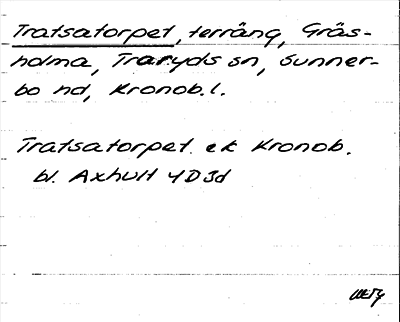 Tratsatorpet, terräng, Gräs-
holma, Traryds sn, Sunner-
bo hd, Kronob. l.
Tratsatorpet. ek Kronob.
bl. Axhult 4D3d